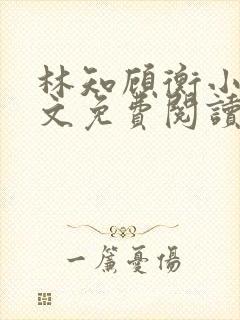 林知顾衡小
文免費閱讀
一簾憂傷